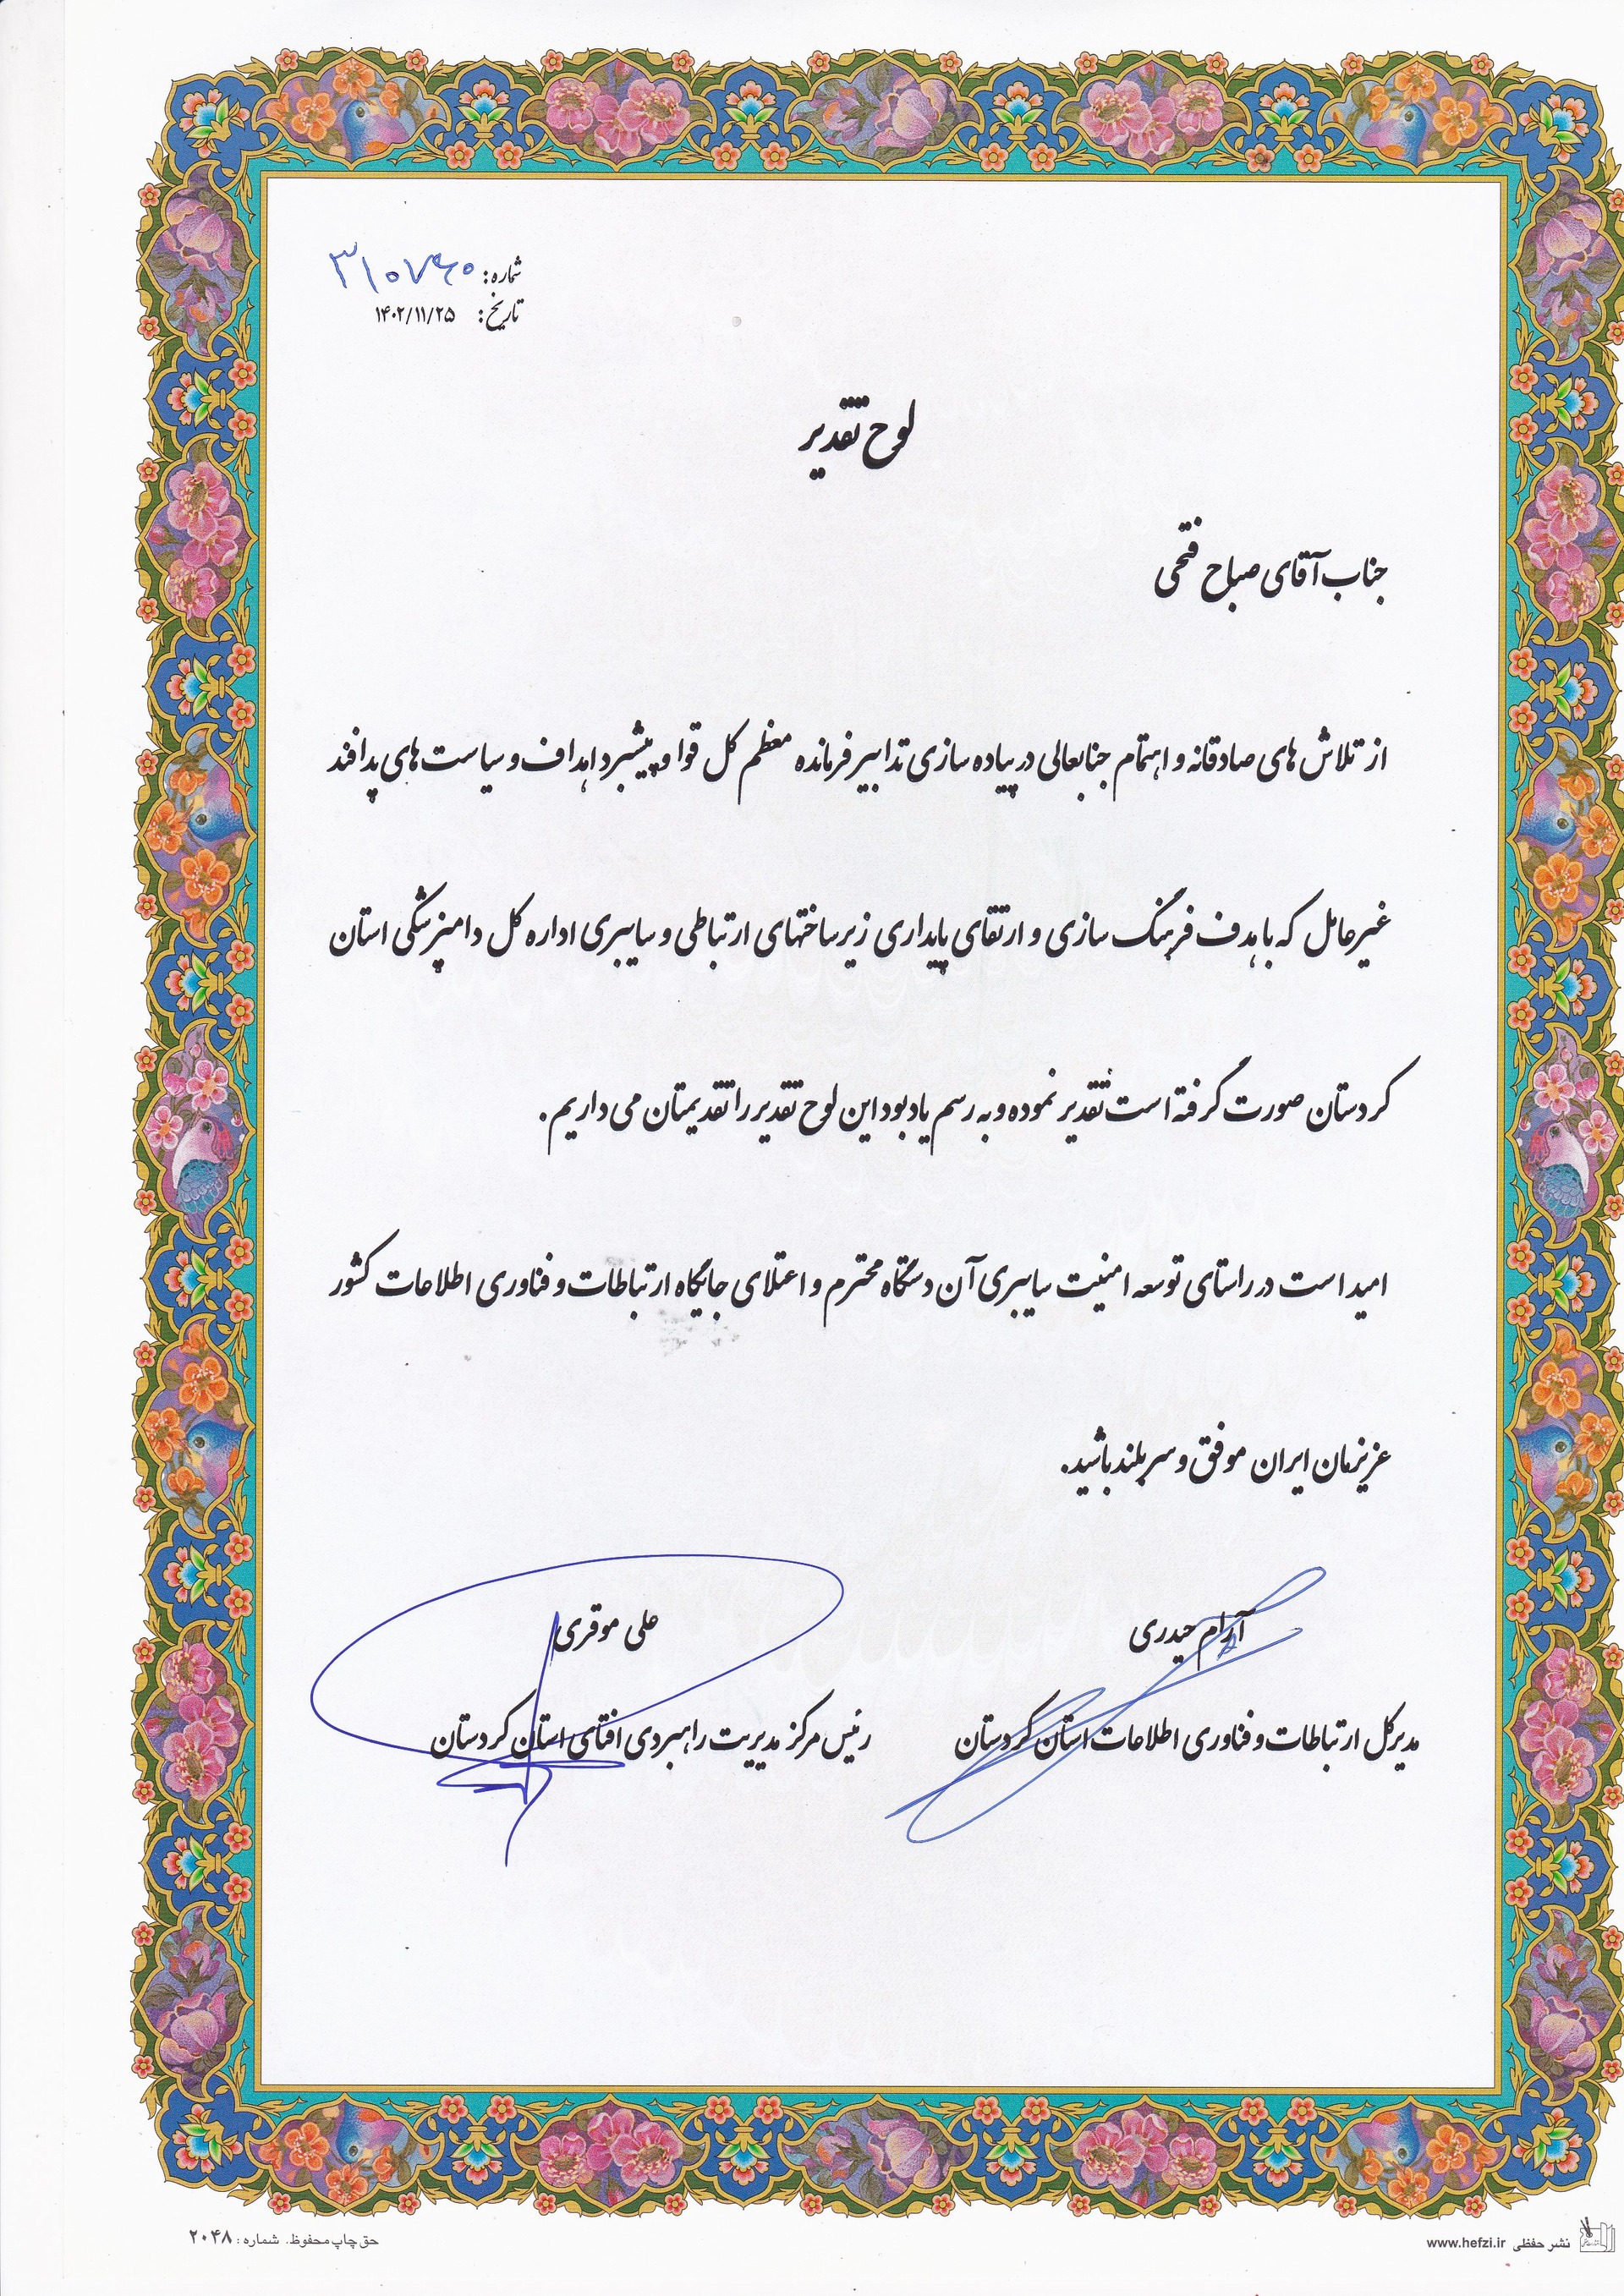 شماره: ۳۱۰۷۹۰
تاریخ: ۱۴۰۲/۱۱/۲۵
لوح تقدیر
جناب آقای صباح فتحی
از تلاش های صادقانه و اهتمام جنابعالی در پیاده سازی تدابیر فرمانده معظم کل قوا و پیشبرد اهداف و سیاست های پدافند
غیرعامل که با هدف فرهنگ سازی و ارتقای پایداری زیرساختهای ارتباطی و سایبری اداره کل دامپزشکی استان
کردستان صورت گرفته است تقدیر نموده و به رسم یادبود این لوح تقدیر را تقدیمتان می داریم.
امید است در راستای توسعه امنیت سایبری آن دستگاه محترم و اعتلای جایگاه ارتباطات و فناوری اطلاعات کشور
عزیزمان ایران موفق و سربلند باشید.
آرام حیدری
مدیرکل ارتباطات و فناوری اطلاعات استان کردستان
علی موقری
رئیس مرکز مدیریت راهبردی افتای استان کردستان
نشر حفظی www.hefzi.ir
حق چاپ محفوظ. شماره: ۲۰۴۸